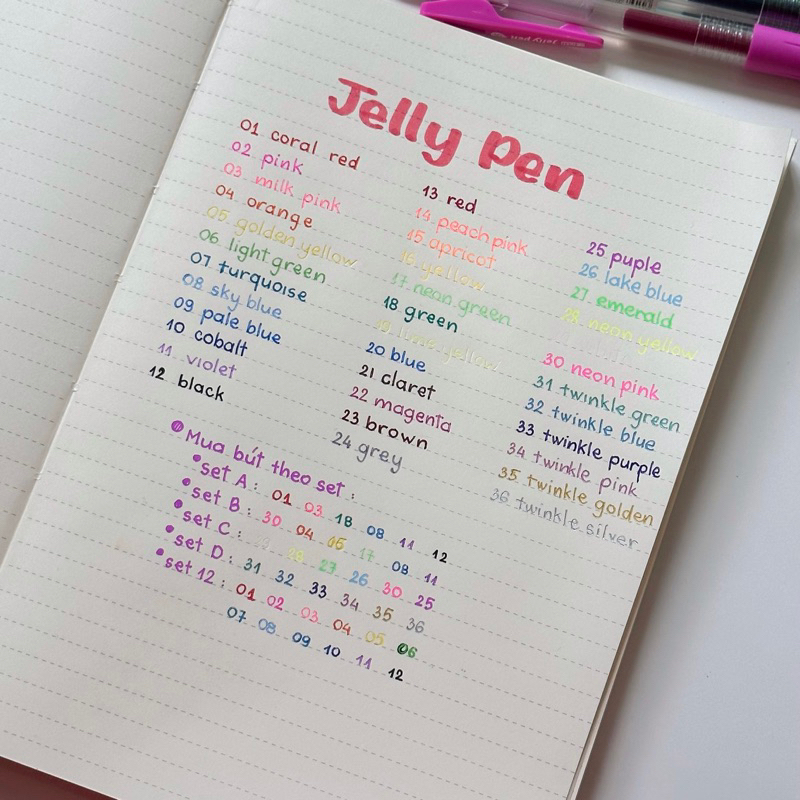 Jelly Pen
01 coral red
02 pink
03 milk pink
04 orange
05 golden yellow
06 light green
07 turquoise
08 sky blue
09 pale blue
10 cobalt
11 violet
12 black
13 red
14 peach pink
15 apricot
16 yellow
17 neon green
18 green
19 lime yellow
20 blue
21 claret
22 magenta
23 brown
24 grey
25 puple
26 lake blue
27 emerald
28 neon yellow
30 neon pink
31 twinkle green
32 twinkle blue
33 twinkle purple
34 twinkle pink
35 twinkle golden
36 twinkle silver
Mua bút theo set :
set A : 01 03 18 08 11 12
set B : 30 04 05 17 08 11
set C : 28 27 26 30 25
set D : 31 32 33 34 35 36
set 12 : 01 02 03 04 05 06
07 08 09 10 11 12